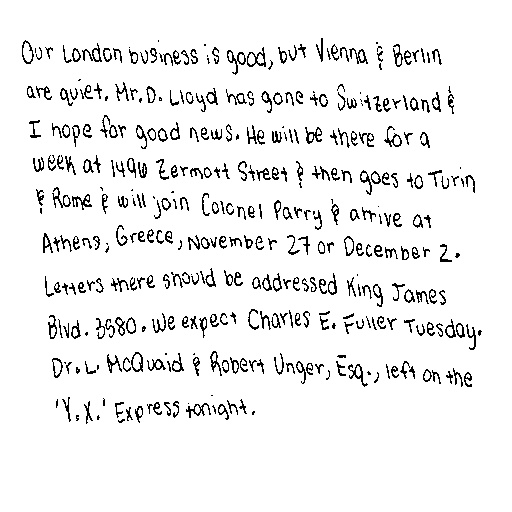 Our London business is good, but Vienna & Berlin
are quiet. Mr. D. Lloyd has gone to Switzerland &
I hope for good news. He will be there for a
week at 1496 Zermott Street & then goes to Turin
& Rome & will join Colonel Parry & arrive at
Athens, Greece, November 27 or December 2.
Letters there should be addressed King James
Blvd. 3580. We expect Charles E. Fuller Tuesday.
Dr. L. McQuaid & Robert Unger, Esq., left on the
'Y.X.' Express tonight.